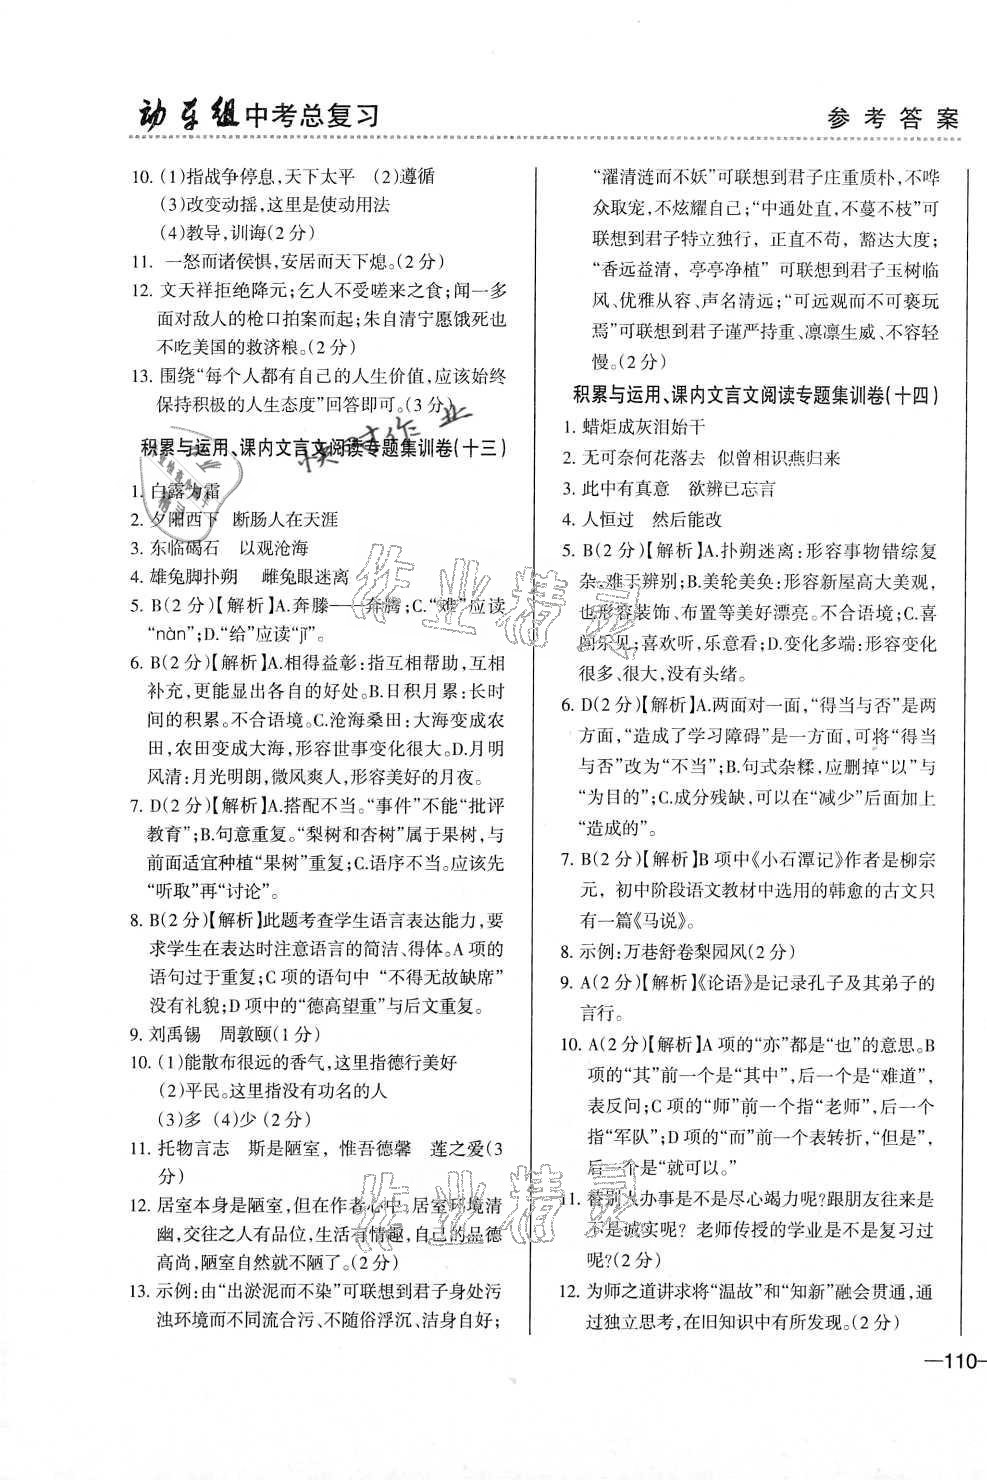 动车组中考总复习
参考答案
10. (1)指战争停息,天下太平 (2)遵循
(3)改变动摇,这里是使动用法
(4)教导,训诲(2分)
11. 一怒而诸侯惧,安居而天下熄。(2分)
12. 文天祥拒绝降元;乞人不受嗟来之食;闻一多
面对敌人的枪口拍案而起;朱自清宁愿饿死也
不吃美国的救济粮。(2分)
13. 围绕“每个人都有自己的人生价值,应该始终
保持积极的人生态度”回答即可。(3分)
积累与运用、课内文言文阅读专题集训卷(十三)
1. 白露为霜
2. 夕阳西下 断肠人在天涯
3. 东临碣石 以观沧海
4. 雄兔脚扑朔 雌兔眼迷离
5. B(2分)【解析】A.奔滕——奔腾;C.“难”应读
“nàn”;D.“给”应读“jǐ”。
6. B(2分)【解析】A.相得益彰:指互相帮助,互相
补充,更能显出各自的好处。B.日积月累:长时
间的积累。不合语境。C.沧海桑田:大海变成农
田,农田变成大海,形容世事变化很大。D.月明
风清:月光明朗,微风爽人,形容美好的月夜。
7. D(2分)【解析】A.搭配不当。“事件”不能“批评
教育”;B.句意重复。“梨树和杏树”属于果树,与
前面适宜种植“果树”重复;C.语序不当。应该先
“听取”再“讨论”。
8. B(2分)【解析】此题考查学生语言表达能力,要
求学生在表达时注意语言的简洁、得体。A项的
语句过于重复;C项的语句中“不得无故缺席”
没有礼貌;D项中的“德高望重”与后文重复。
9. 刘禹锡 周敦颐(1分)
10. (1)能散布很远的香气,这里指德行美好
(2)平民。这里指没有功名的人
(3)多 (4)少(2分)
11. 托物言志 斯是陋室,惟吾德馨 莲之爱(3
分)
12. 居室本身是陋室,但在作者心中,居室环境清
幽,交往之人有品位,生活有情趣,自己的品德
高尚,陋室自然就不陋了。(2分)
13. 示例:由“出淤泥而不染”可联想到君子身处污
浊环境而不同流合污、不随俗浮沉、洁身自好;
“濯清涟而不妖”可联想到君子庄重质朴,不哗
众取宠,不炫耀自己;“中通外直,不蔓不枝”可
联想到君子特立独行,正直不苟,豁达大度;
“香远益清,亭亭净植”可联想到君子玉树临
风、优雅从容、声名清远;“可远观而不可亵玩
焉”可联想到君子谨严持重、凛凛生威、不容轻
慢。(2分)
积累与运用、课内文言文阅读专题集训卷(十四)
1. 蜡炬成灰泪始干
2. 无可奈何花落去 似曾相识燕归来
3. 此中有真意 欲辨已忘言
4. 人恒过 然后能改
5. B(2分)【解析】A.扑朔迷离:形容事物错综复
杂。难于辨别;B.美轮美奂:形容新屋高大美观,
也形容装饰、布置等美好漂亮。不合语境;C.喜
闻乐见:喜欢听,乐意看;D.变化多端:形容变化
很多、很大,没有头绪。
6. D(2分)【解析】A.两面对一面,“得当与否”是两
方面,“造成了学习障碍”是一方面,可将“得当
与否”改为“不当”;B.句式杂糅,应删掉“以”与
“为目的”;C.成分残缺,可以在“减少”后面加上
“造成的”。
7. B(2分)【解析】B项中《小石潭记》作者是柳宗
元,初中阶段语文教材中选用的韩愈的古文只
有一篇《马说》。
8. 示例:万巷舒卷梨园风(2分)
9. A(2分)【解析】《论语》是记录孔子及其弟子的
言行。
10. A(2分)【解析】A项的“亦”都是“也”的意思。B
项的“其”前一个是“其中”,后一个是“难道”,
表反问;C项的“师”前一个指“老师”,后一个
指“军队”;D项的“而”前一个表转折,“但是”,
后一个是“就可以。”
11. 替别人办事是不是尽心竭力呢?跟朋友往来是
不是诚实呢?老师传授的学业是不是复习过
呢?(2分)
12. 为师之道讲求将“温故”和“知新”融会贯通,通
过独立思考,在旧知识中有所发现。(2分)
—110—
快对作业
作业精灵
作业精灵